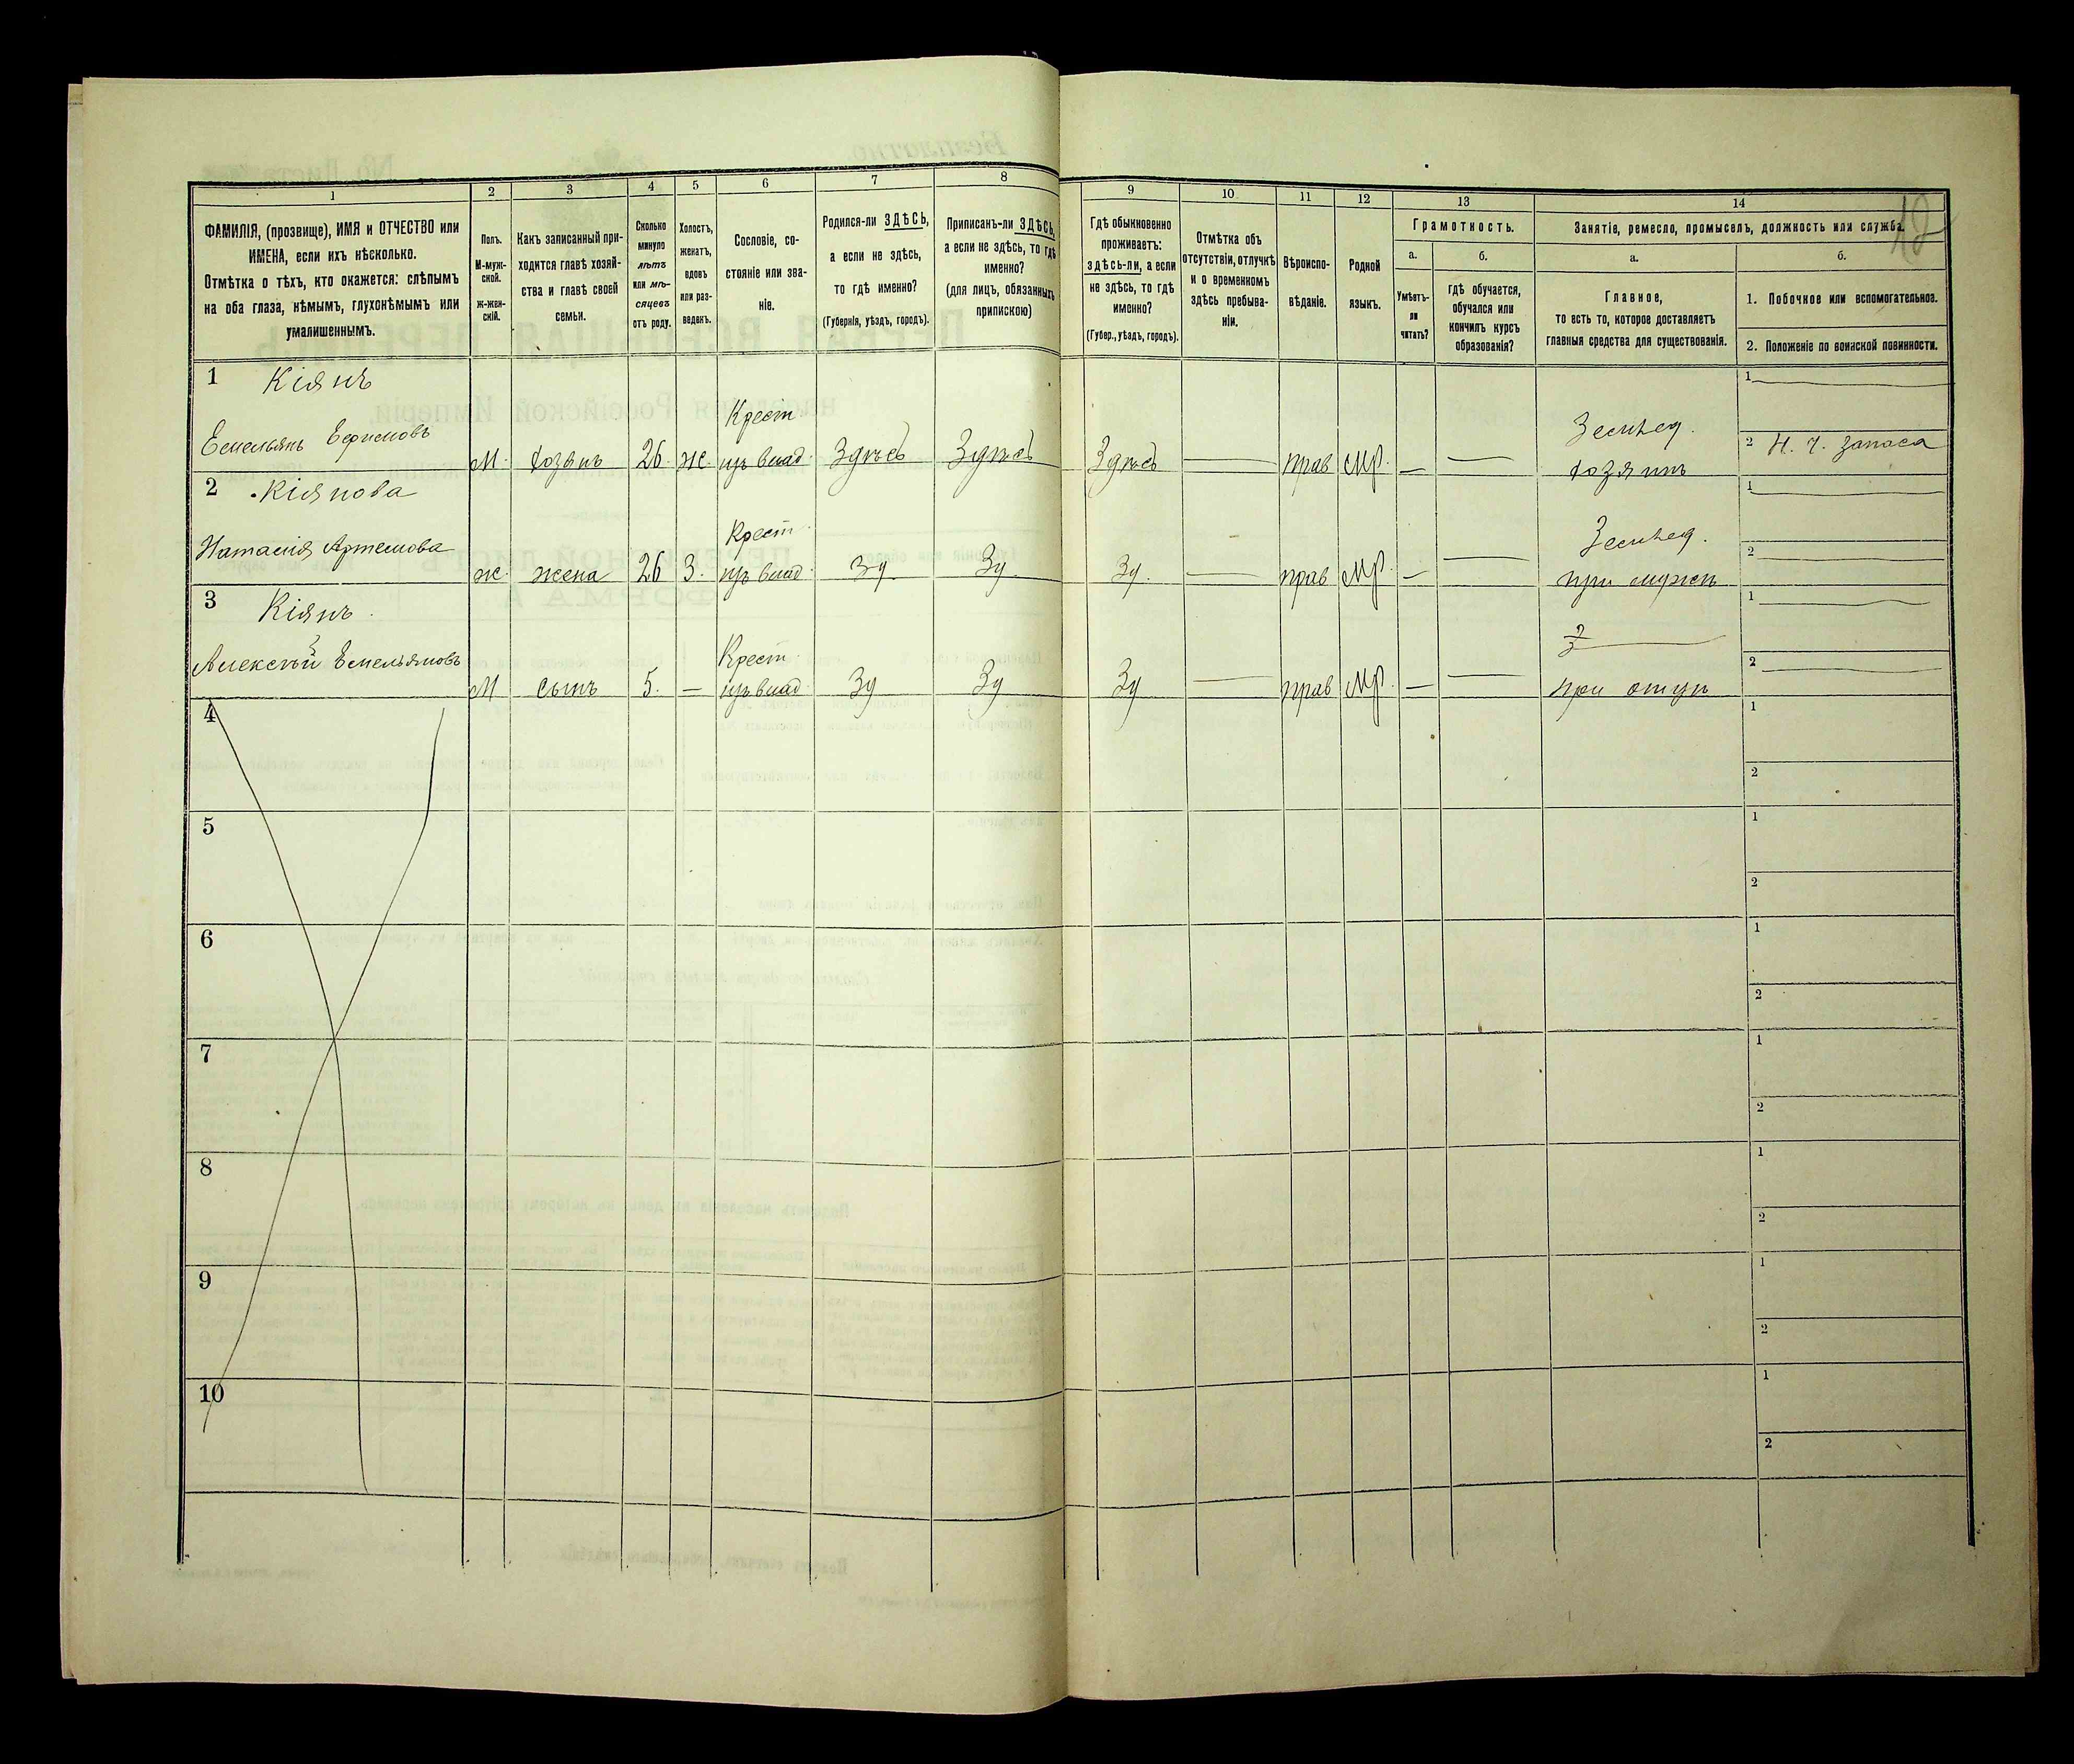 12
1
ФАМИЛІЯ, (прозвище), ИМЯ и ОТЧЕСТВО или
ИМЕНА, если ихъ нѣсколько.
Отмѣтка о тѣхъ, кто окажется: слѣпымъ
на оба глаза, нѣмымъ, глухонѣмымъ или
умалишеннымъ.
2
Полъ.
М-муж-
ской.
ж-жен-
скій.
3
Какъ записанный при-
ходится главѣ хозяй-
ства и главѣ своей
семьи.
4
Сколько
минуло
лѣтъ
или мѣ-
сяцевъ
отъ роду.
5
Холостъ,
женатъ,
вдовъ
или раз-
веденъ.
6
Сословіе, со-
стояніе или зва-
ніе.
7
Родился-ли ЗДѢСЬ,
а если не здѣсь,
то гдѣ именно?
(Губернія, уѣздъ, городъ).
8
Приписанъ-ли ЗДѢСЬ,
а если не здѣсь, то гдѣ
именно?
(для лицъ, обязанныхъ
припискою)
9
Гдѣ обыкновенно
проживаетъ:
здѣсь-ли, а если
не здѣсь, то гдѣ
именно?
(Губер., уѣздъ, городъ).
10
Отмѣтка объ
отсутствіи, отлучкѣ
и о временномъ
здѣсь пребыва-
ніи.
11
Вѣроиспо-
вѣданіе.
12
Родной
языкъ.
13
Грамотность.
а.
Умѣетъ-
ли
читать?
б.
гдѣ обучается,
обучался или
кончилъ курсъ
образованія?
14
Занятіе, ремесло, промыселъ, должность или служба.
а.
Главное,
то есть то, которое доставляетъ
главныя средства для существованія.
б.
1. Побочное или вспомогательное.
2. Положеніе по воинской повинности.
1 Кіянъ
Емельянъ Ефимовъ
М. хозяинъ 26 Ж. Крест.
изъ влад. Здѣсь Здѣсь Здѣсь — прав МР. — — Землед.
хозяинъ
1
2 Н. Ч. запаса
2 Кіянова
Наталія Артемова
Ж. жена 26 З. Крест.
изъ влад. Зд Зд. Зд. — прав МР. — — Землед.
при мужѣ
1
2
3 Кіянъ
Алексѣй Емельяновъ
М сынъ 5. — Крест.
изъ влад. Зд Зд Зд — прав МР. — —
при отцѣ
1
2
4
1
2
5
1
2
6
1
2
7
1
2
8
1
2
9
1
2
10
1
2